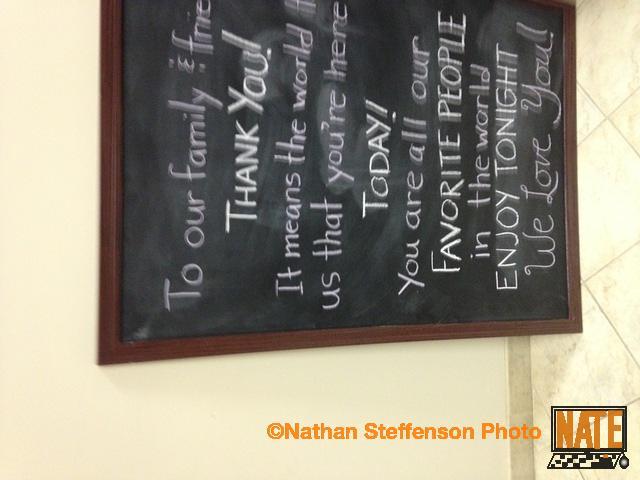 To our family & frie
THANK YOU!
It means the world
us that you're here
TODAY!
You are all our
FAVORITE PEOPLE
in the world
ENJOY TONIGHT
We Love You!!
©Nathan Steffenson Photo
NATE